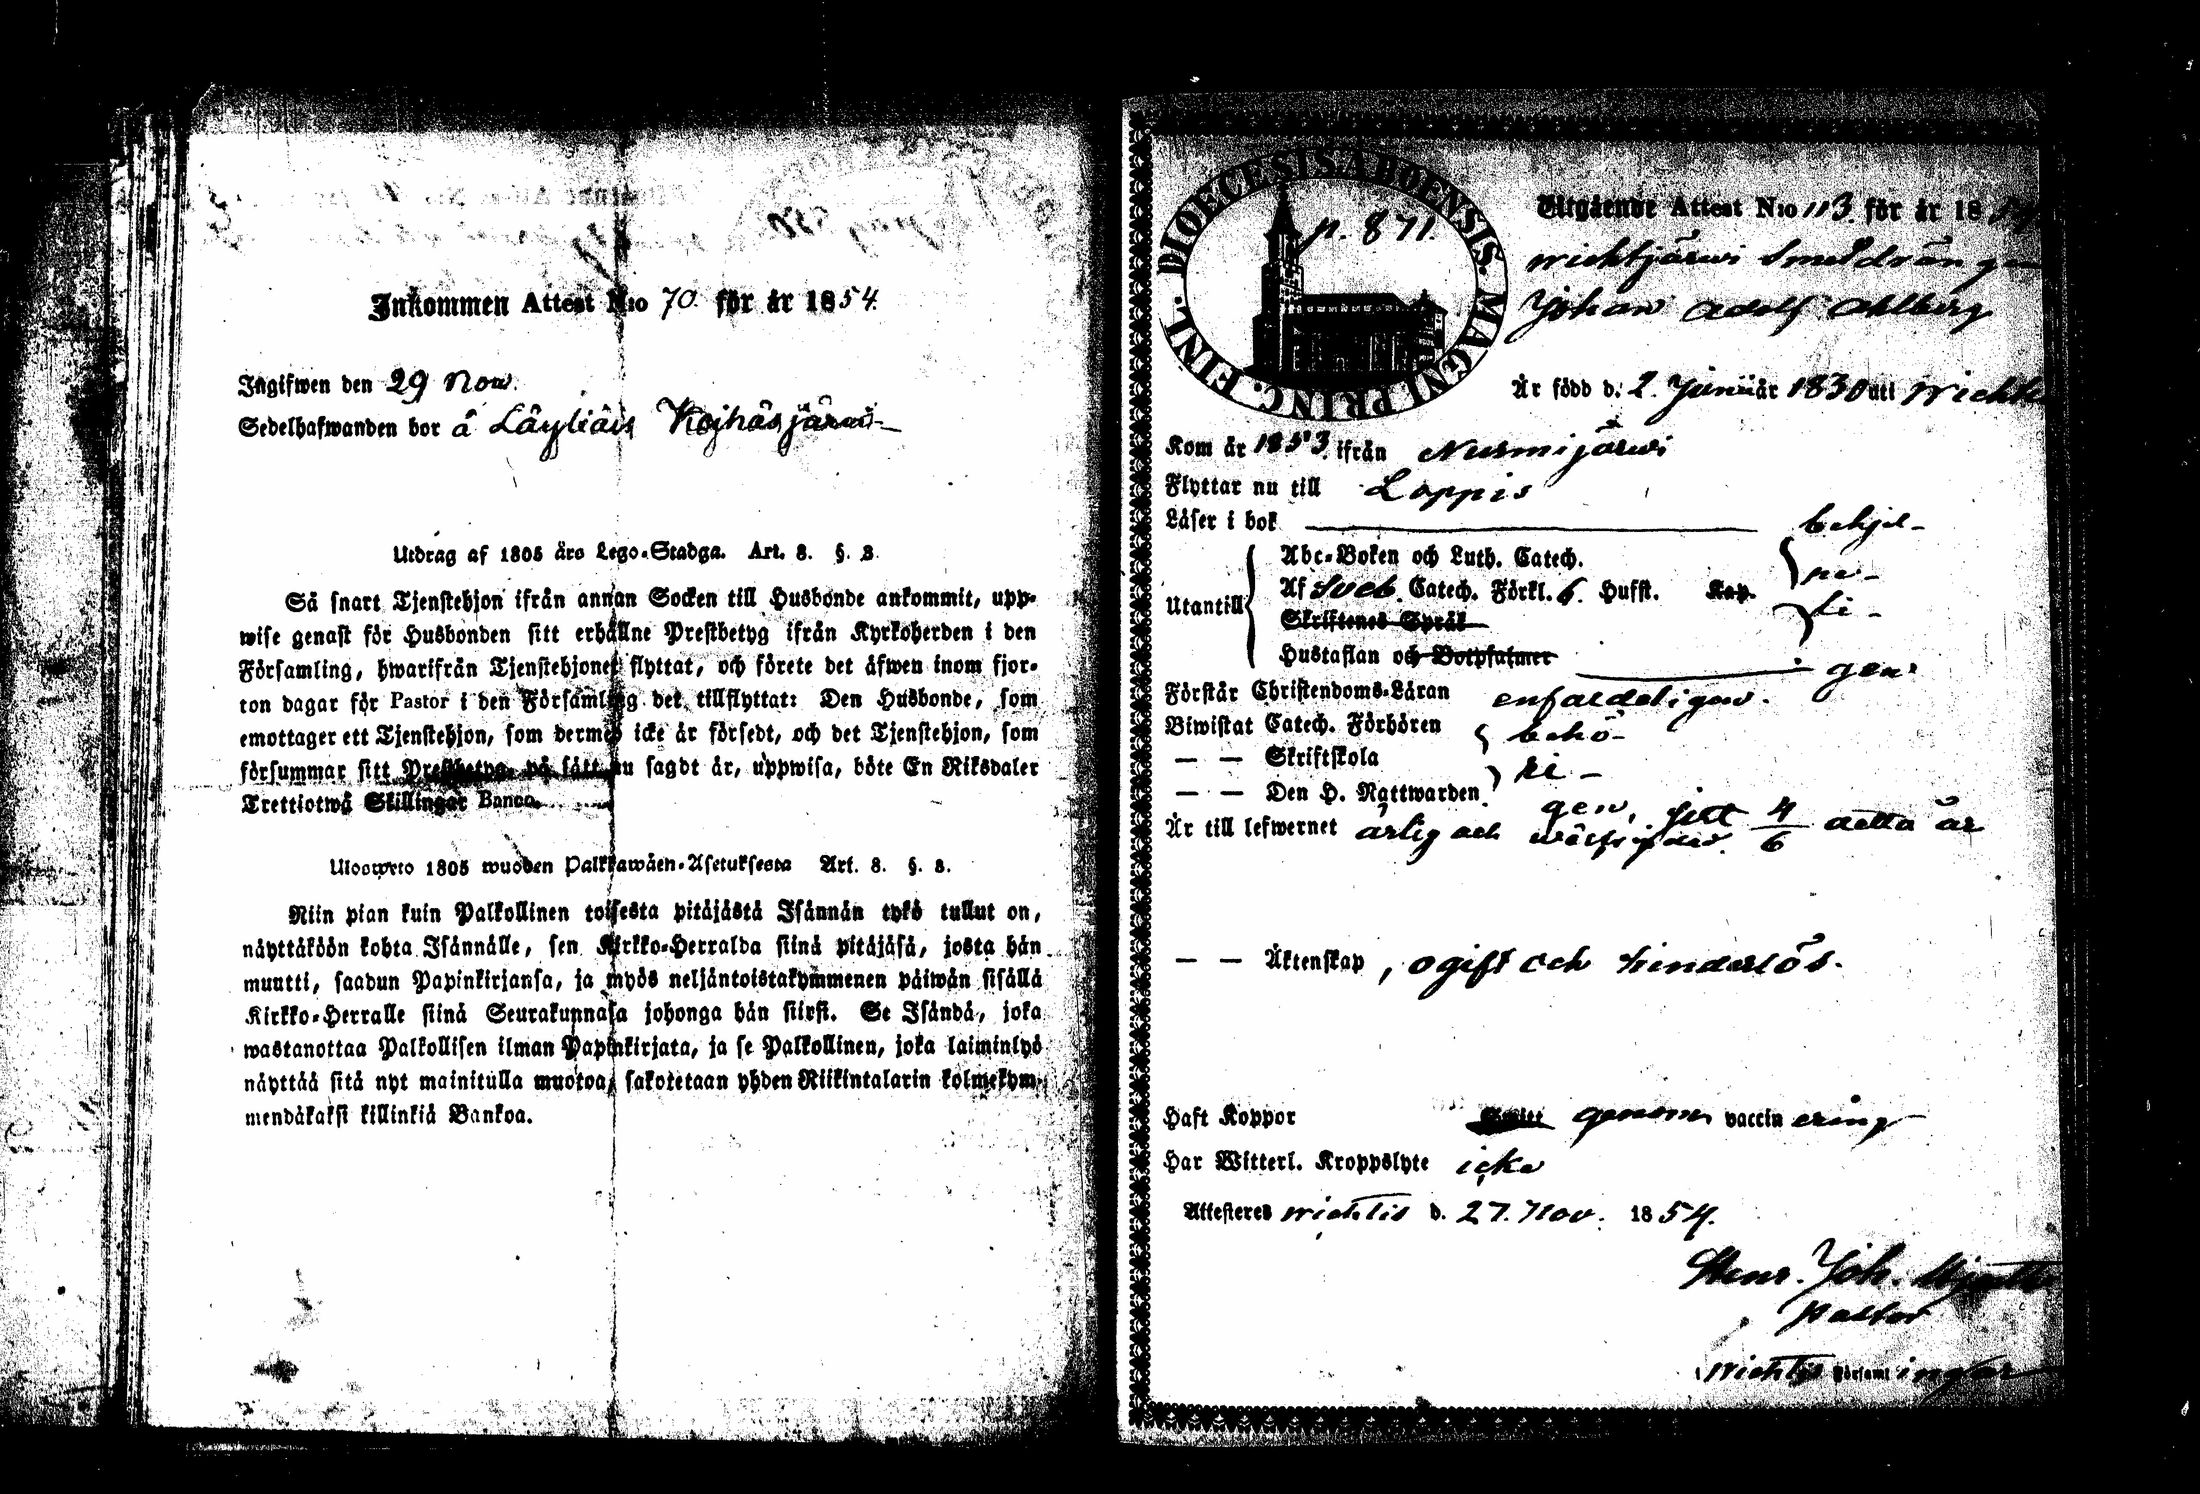 Inkommen Attest N:o 70. för år 1854.
Ingifwen den 29 Nov.
Sedelhafwanden bor å Läyliäis Kojhäsjärwi
Utdrag af 1805 års Lego-Stadga. Art. 8. §. 3.
Så snart Tjenstehjon ifrån annan Socken till Husbonde ankommit, upp-
wise genast för Husbonden sitt erhållne Prestbetyg ifrån Kyrkoherden i den
Församling, hwarifrån Tjenstehjonet flyttat, och förete det äfwen inom fjor-
ton dagar för Pastor i den Församling det tillflyttat: Den Husbonde, som
emottager ett Tjenstehjon, som dermed icke är försedt, och det Tjenstehjon, som
försummar sitt Prestbetyg, på sätt nu sagdt är, uppwisa, böte En Riksdaler
Trettiotwå Skillingar Banco.
Ulosweto 1805 wuoden Palkkawäen-Asetuksesta Art. 8. §. 3.
Niin pian kuin Palkollinen toisesta pitäjästä Isännän tykö tullut on,
näyttäköön kohta Isännälle, sen Kirkko-Herralda siinä pitäjäsä, josta hän
muutti, saadun Papinkirjansa, ja myös neljäntoistakymmenen päiwän sisällä
Kirkko-Herralle siinä Seurakunnasa johonga hän siirsi. Se Isändä, joka
wastanottaa Palkollisen ilman Papinkirjata, ja se Palkollinen, joka laiminlyö
näyttää sitä nyt mainitulla muotoa, sakotetaan yhden Riikintalarin kolmekym-
mendäkaksi killinkiä Bankoa.
DIOECESIS ABOENSIS. MAGNI PRINC. FINL.
p. 871.
Utgående Attest N:o 113. för år 18
Wichtjärwi Smeddrängen
Johan Adolf Ahlberg
Är född d. 2. Januar år 1830 uti Wichtis
Kom år 1853 ifrån Nurmijärwi
Flyttar nu till Loppis
Läser i bok behjel-
Utantill
Abc-Boken och Luth. Catech. pe-
Af Sveb. Catech. Förkl. 6. Hufst. Kap. li-
Skriftenes Språk
Hustaflan och Botpsalmer gen
Förstår Christendoms-Läran enfaldeligen.
Biwistat Catech. Förhören behö-
— — Skriftskola ri-
— — Den H. Nattwarden gen, sist 4/6 detta år
Är till lefwernet ärlig och
— — Äktenskap, ogift och hinderlös.
Haft Koppor genom vaccinering
Har Witterl. Kroppslyte icke
Attesteras Wichtis d. 27. Nov. 1854.
Henr. Joh.
Pastor
Wichtis Församlingar